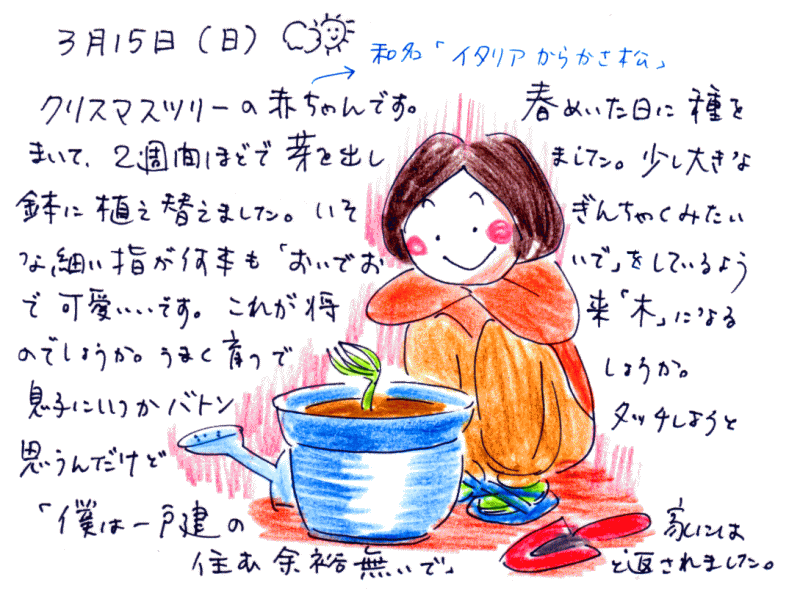 3月15日（日）
和名「イタリアからかさ松」
クリスマスツリーの赤ちゃんです。 春めいた日に種を
まいて、2週間ほどで芽を出し ました。少し大きな
鉢に植え替えました。いそ ぎんちゃくみたい
な細い指が何本も「おいでお いで」をしているよう
で可愛いいです。これが将 来「木」になる
のでしょうか。うまく育つで しょうか。
息子にいつかバトン タッチしようと
思うんだけど
「僕は一戸建の 家には
住む余裕無いで」 と返されました。